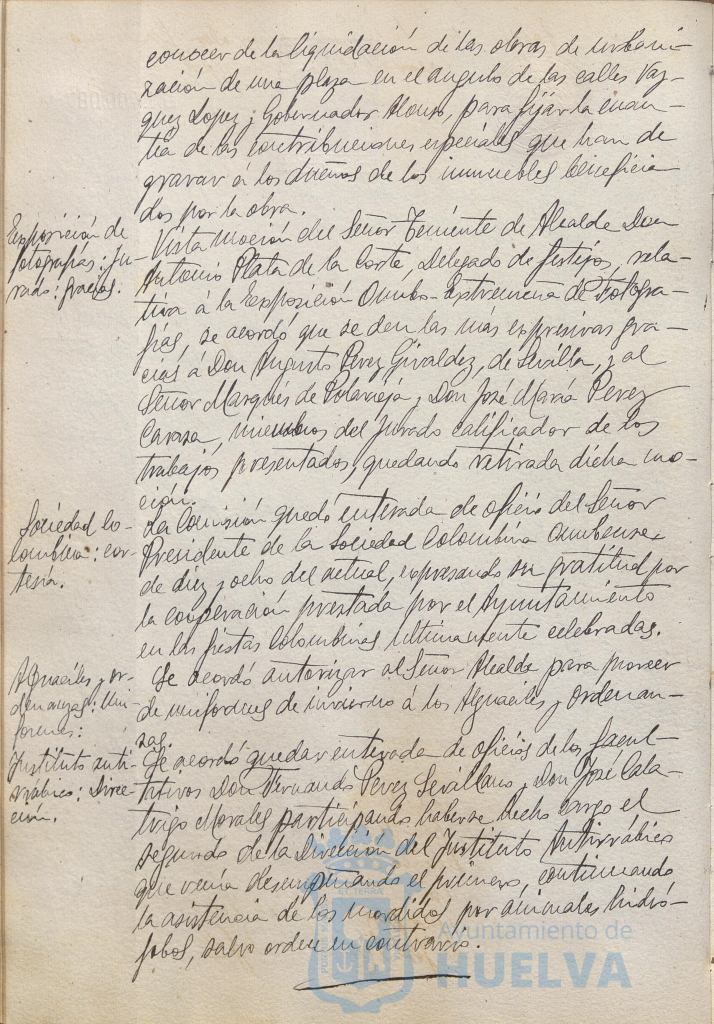 conocer de la liquidación de las obras de urbani-
zación de una plaza en el angulo de las calles Vaz-
quez Lopez y Gobernador Alonso, para fijar la cuan-
tía de las contribuciones especiales que han de
gravar á los dueños de los inmuebles beneficia
dos por la obra.
Exposición de
fotografías: ju-
rado: gracias.
Vista moción del Señor Teniente de Alcalde Don
Antonio Plata de la Corte, Delegado de festejos, rela-
tiva á la Exposición Onubo-Extremeña de Fotogra-
fías, se acordó que se den las más expresivas gra-
cias á Don Augusto Perez Giraldez, de Sevilla, y al
Señor Marqués de Polavieja y Don José María Perez
Carasa, miembros del Jurado calificador de los
trabajos presentados, quedando retirada dicha mo-
ción.
Sociedad Co-
lombina: cor-
tesía.
La Comisión quedó enterada de oficio del Señor
Presidente de la Sociedad Colombina Onubense,
de diez y ocho del actual, expresando su gratitud por
la cooperación prestada por el Ayuntamiento
en las fiestas Colombinas ultimamente celebradas.
Alguaciles y or-
denanzas: Uni-
formes:
Se acordó autorizar al Señor Alcalde para proveer
de uniformes de invierno á los Alguaciles y Ordenan-
zas.
Instituto anti-
rrábico: Direc-
ción.
Se acordó quedar enterada de oficios de los facul-
tativos Don Fernando Perez Sevillano y Don José Cala-
trigo Morales participando haberse hecho cargo el
segundo de la Dirección del Instituto Antirrábico
que venía desempeñando el primero, continuando
la asistencia de los mordidos por animales hidró-
fobos, salvo orden en contrario.
Ayuntamiento de
HUELVA